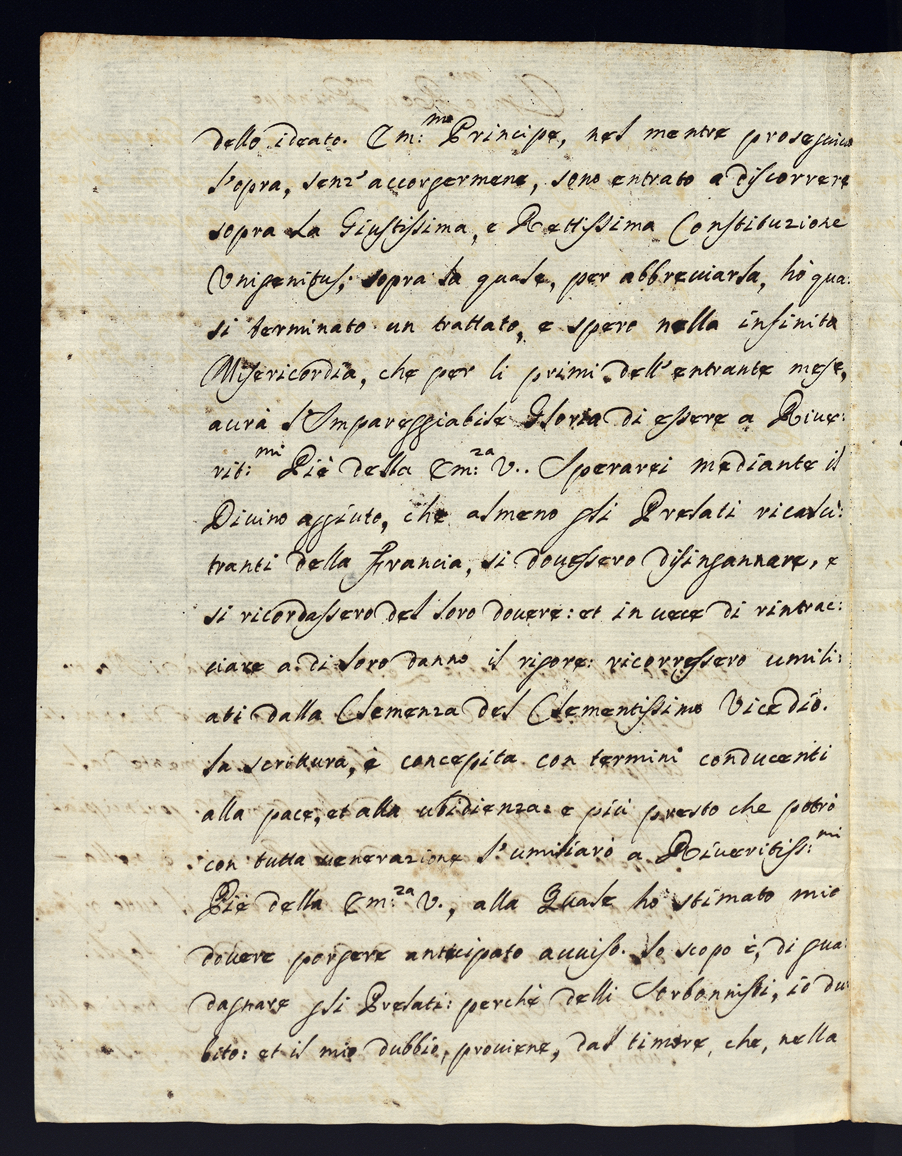 dello ideato. Em:mo Principe, nel mentre proseguivo
l'opra, senz'accorgermene, sono entrato a discorrere
sopra La Giustissima, e Rettissima Constituzione
Unigenitus; sopra la quale, per abbreviarla, hò qua:
si terminato un trattato, e spero nella infinita
Misericordia, che per li primi dell'entrante mese,
aurà l'Impareggiabile Gloria di essere a Riue:
rit:mi Piè della Em:za V.. Sperarei mediante il
Divino aggiuto, che almeno gli Prelati ricalci:
tranti della Francia, si douessero disingannare, e
si ricordassero del loro douere: et in uece di rintrac:
ciare a di loro danno il rigore: ricorressero umili:
ati dalla Clemenza del Clementissimo Vicedio.
la scrittura, è concepita con termini conducenti
alla pace, et alla ubidienza: e più presto che potrò
con tutta uenerazione l'umiliarò a Riueritiss:mi
Piè della Em:za V., alla Quale hò stimato mio
douere porgere anticipato auuiso. lo scopo è, di gua:
dagnare gli Prelati: perchè delli Sorbonnisti, io du:
bito: et il mio dubbio, prouiene, dal timore, che, nella